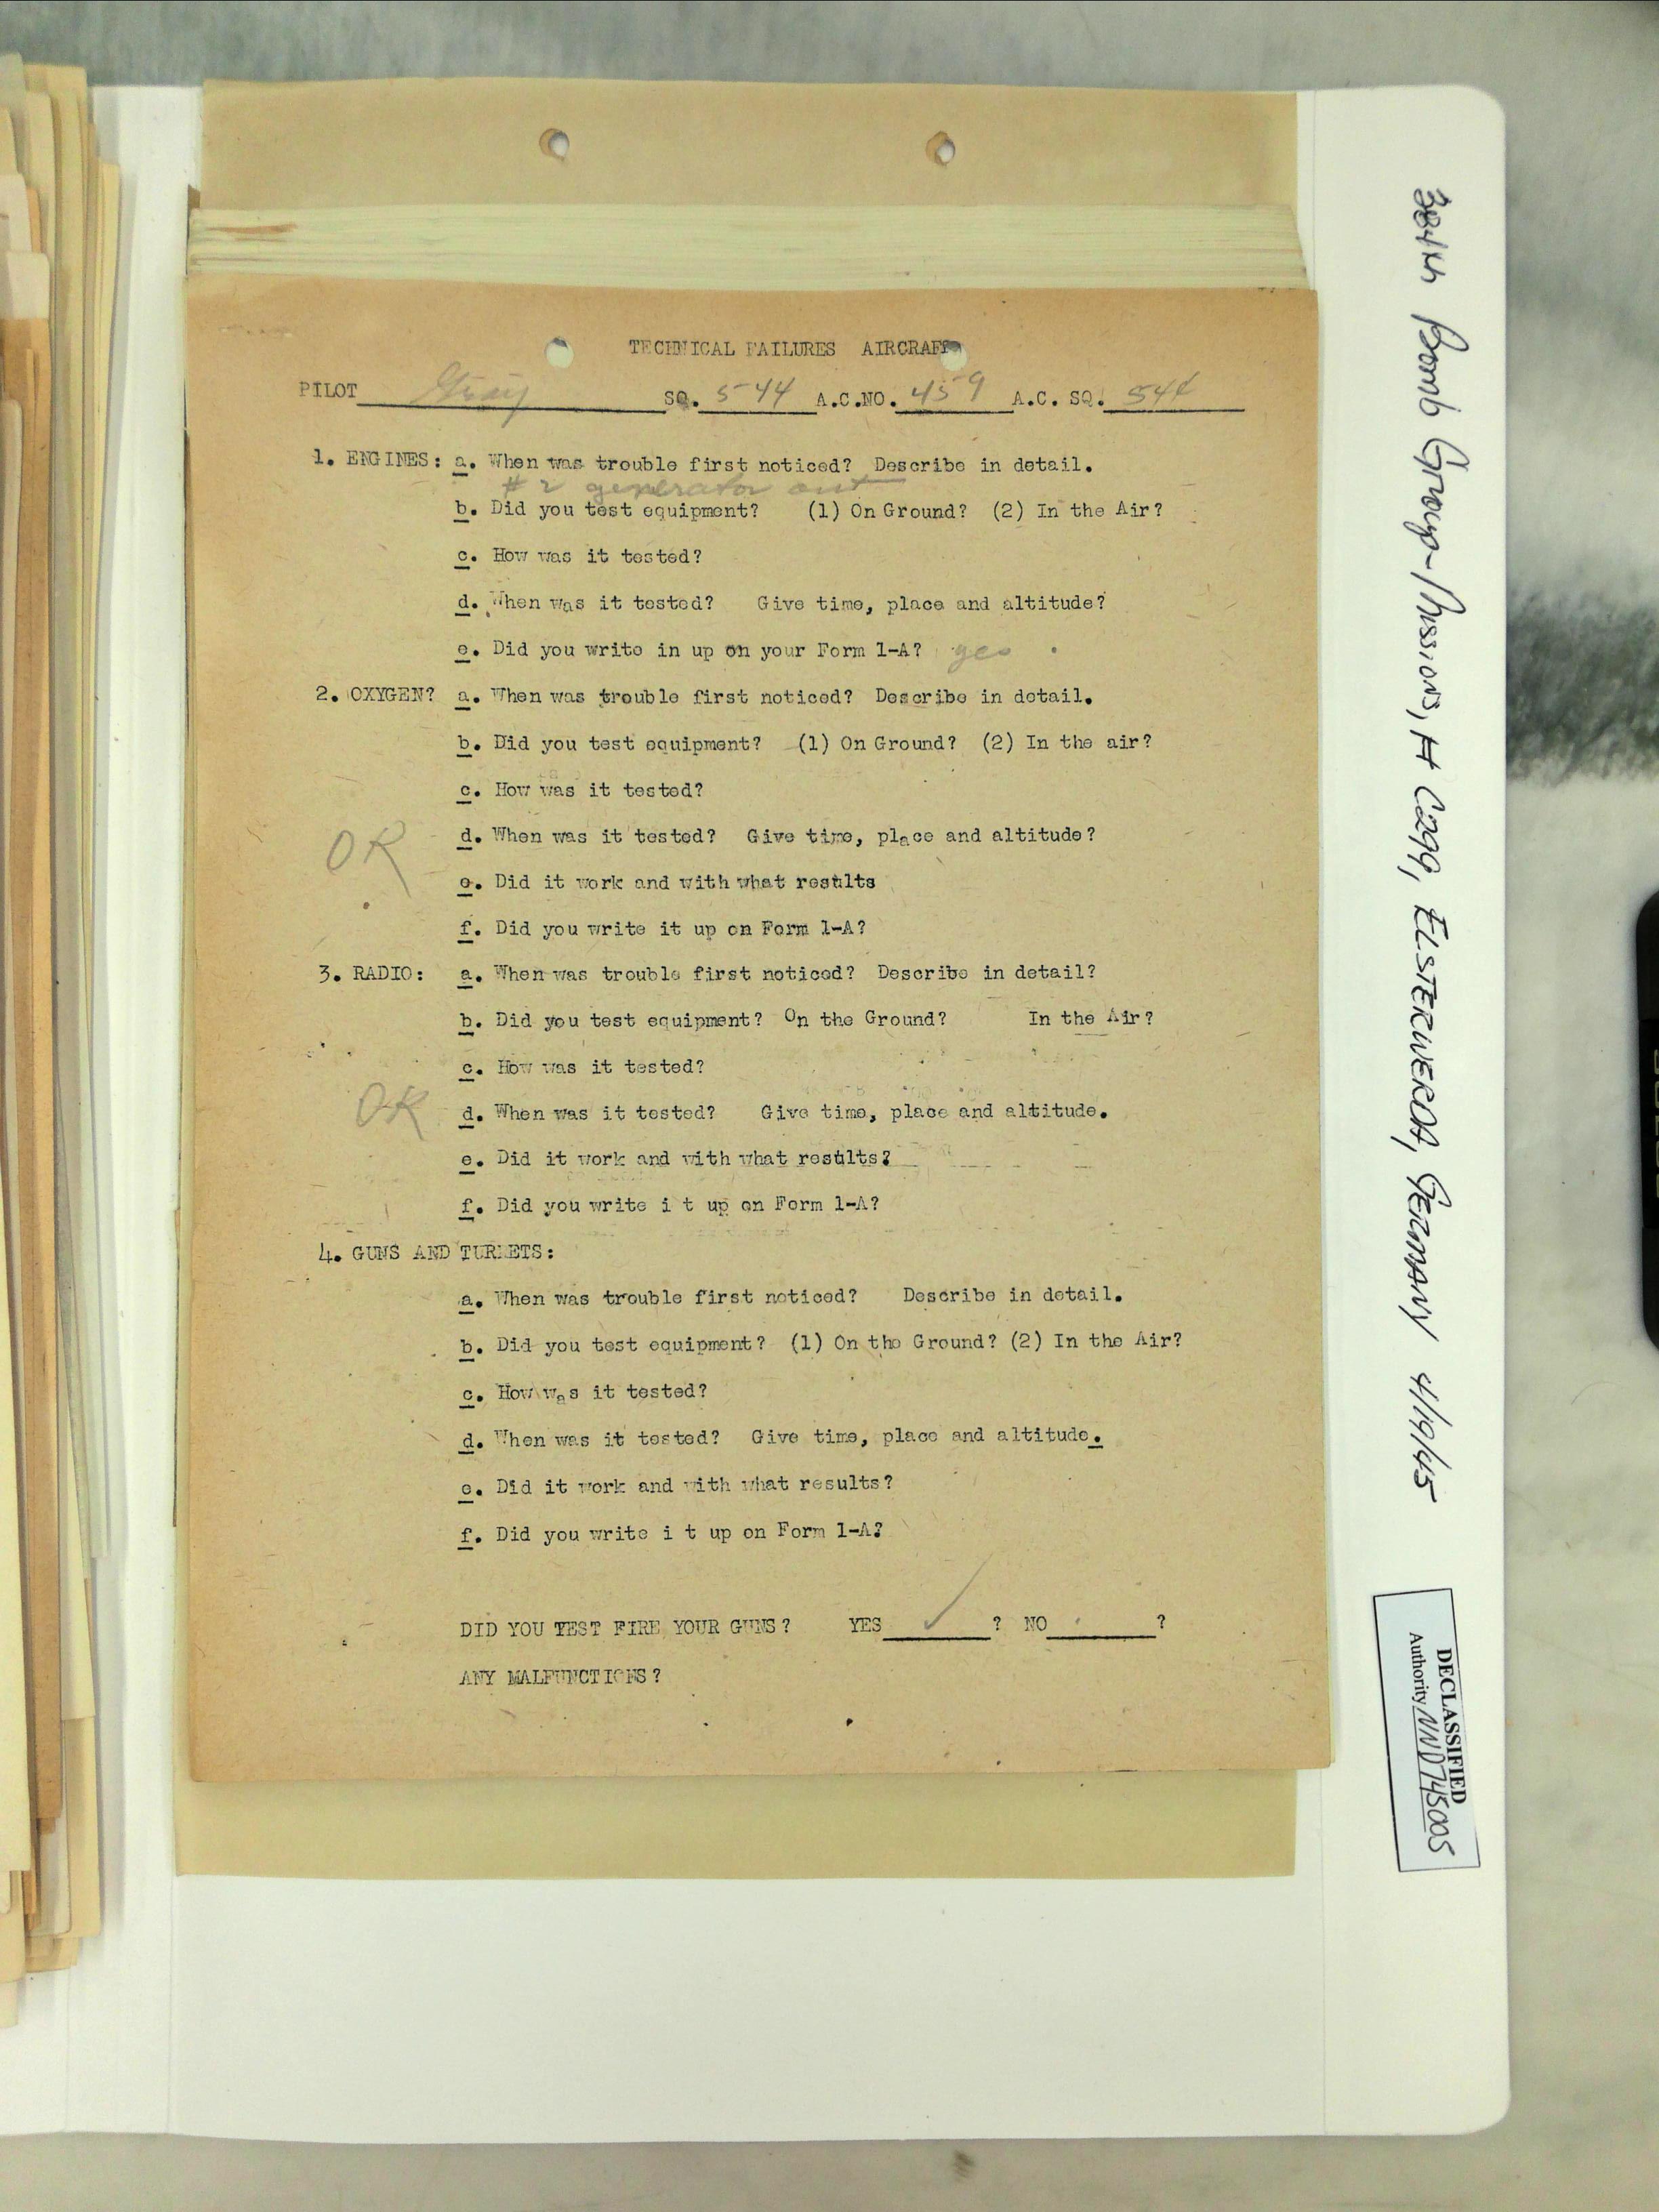 TECHNICAL FAILURES AIRCRAFT
PILOT Gray SQ. 544 A.C.NO. 459 A.C. SQ. 544
1. ENGINES: a. When was trouble first noticed? Describe in detail.
# 2 generator out
b. Did you test equipment? (1) On Ground? (2) In the Air?
c. How was it tested?
d. When was it tested? Give time, place and altitude?
e. Did you write in up on your Form 1-A? yes
2. OXYGEN? a. When was trouble first noticed? Describe in detail.
b. Did you test equipment? (1) On Ground? (2) In the air?
c. How was it tested?
OK d. When was it tested? Give time, place and altitude?
e. Did it work and with what results
f. Did you write it up on Form 1-A?
3. RADIO: a. When was trouble first noticed? Describe in detail?
b. Did you test equipment? On the Ground? In the Air?
c. How was it tested?
OK d. When was it tested? Give time, place and altitude.
e. Did it work and with what results?
f. Did you write i t up on Form 1-A?
4. GUNS AND TURRETS:
a. When was trouble first noticed? Describe in detail.
b. Did you test equipment? (1) On the Ground? (2) In the Air?
c. How was it tested?
d. When was it tested? Give time, place and altitude.
e. Did it work and with what results?
f. Did you write i t up on Form 1-A?
DID YOU TEST FIRE YOUR GUNS? YES ✓ ? NO ?
ANY MALFUNCTIONS?
384th Bomb Group-Mission, # C299, ELSTERWERDA, GERMANY 4/19/45
DECLASSIFIED
Authority NND745005